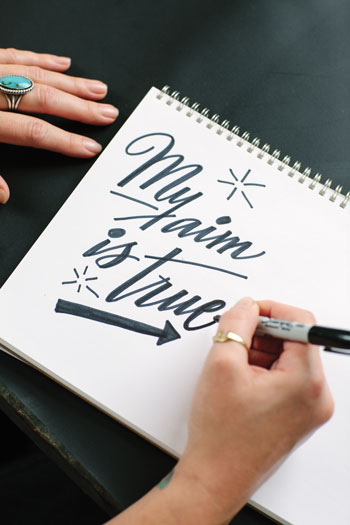 My
aim
is true